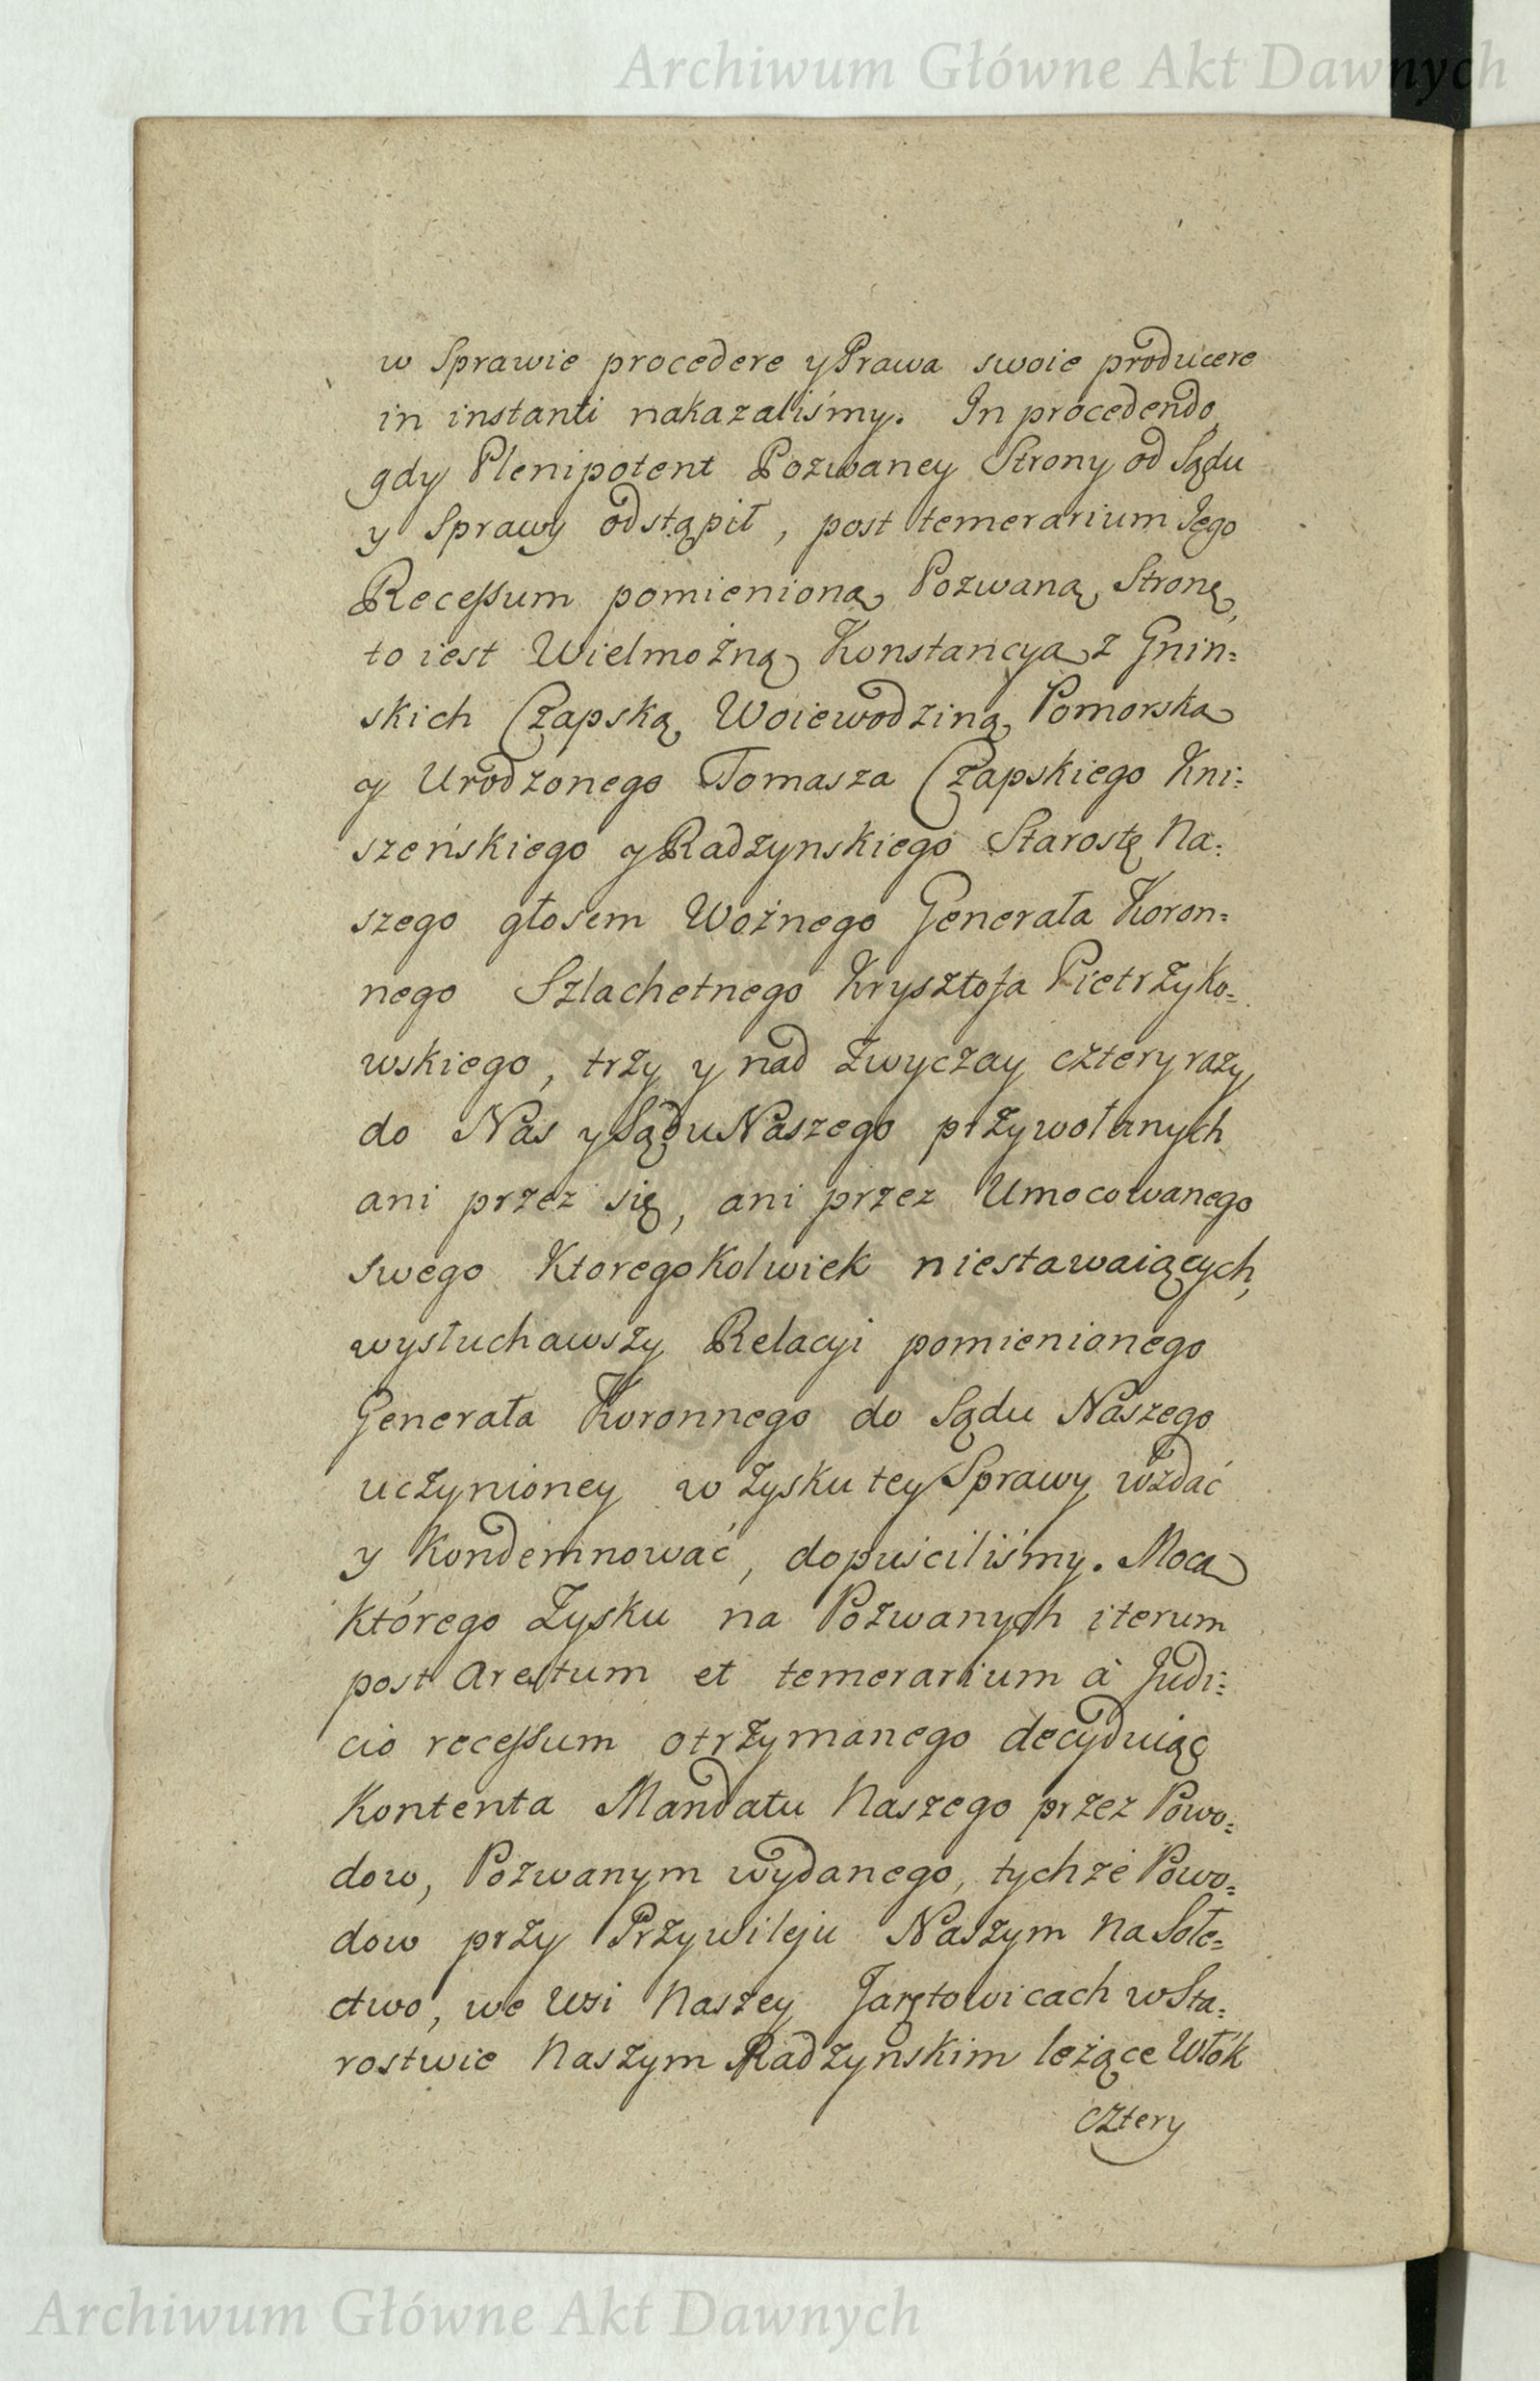 Archiwum Główne Akt Dawnych
w Sprawie procedere y Prawa swoie producere
in instanti nakazaliśmy. In procedendo
gdy Plenipotent Pozwaney Strony od Sądu
y Sprawy odstąpił, post temerarium Jego
Recessum pomienioną Pozwaną Stronę,
to iest Wielmożną Konstancyą z Gnin=
skich Czapską Woiewodziną Pomorską
y Urodzonego Tomasza Czapskiego Kni=
szeńskiego y Radzynskiego Starostę Na=
szego głosem Woźnego Generała Koron=
nego Szlachetnego Krysztofa Pietrzyko=
wskiego, trzy y nad zwyczay cztery razy
do Nas y Sądu Naszego przywołanych
ani przez się, ani przez Umocowanego
swego Ktoregokolwiek niestawaiących,
wysłuchawszy Relacyi pomienionego
Generała Koronnego do Sądu Naszego
uczynioney w zysku tey Sprawy wzdać
y Kondemnować, dopuściliśmy. Mocą
którego Zysku na Pozwanych iterum
post Arestum et temerarium à Judi=
cio recessum otrzymanego decyduiąc
Kontenta Mandatu Naszego przez Powo=
dow, Pozwanym wydanego, tychże Powo=
dow przy Przywileju Naszym na Sołe=
ctwo, we Wsi Naszey Jarętowicach w Sta=
rostwie Naszym Radzynskim leżące Włók
cztery
Archiwum Główne Akt Dawnych